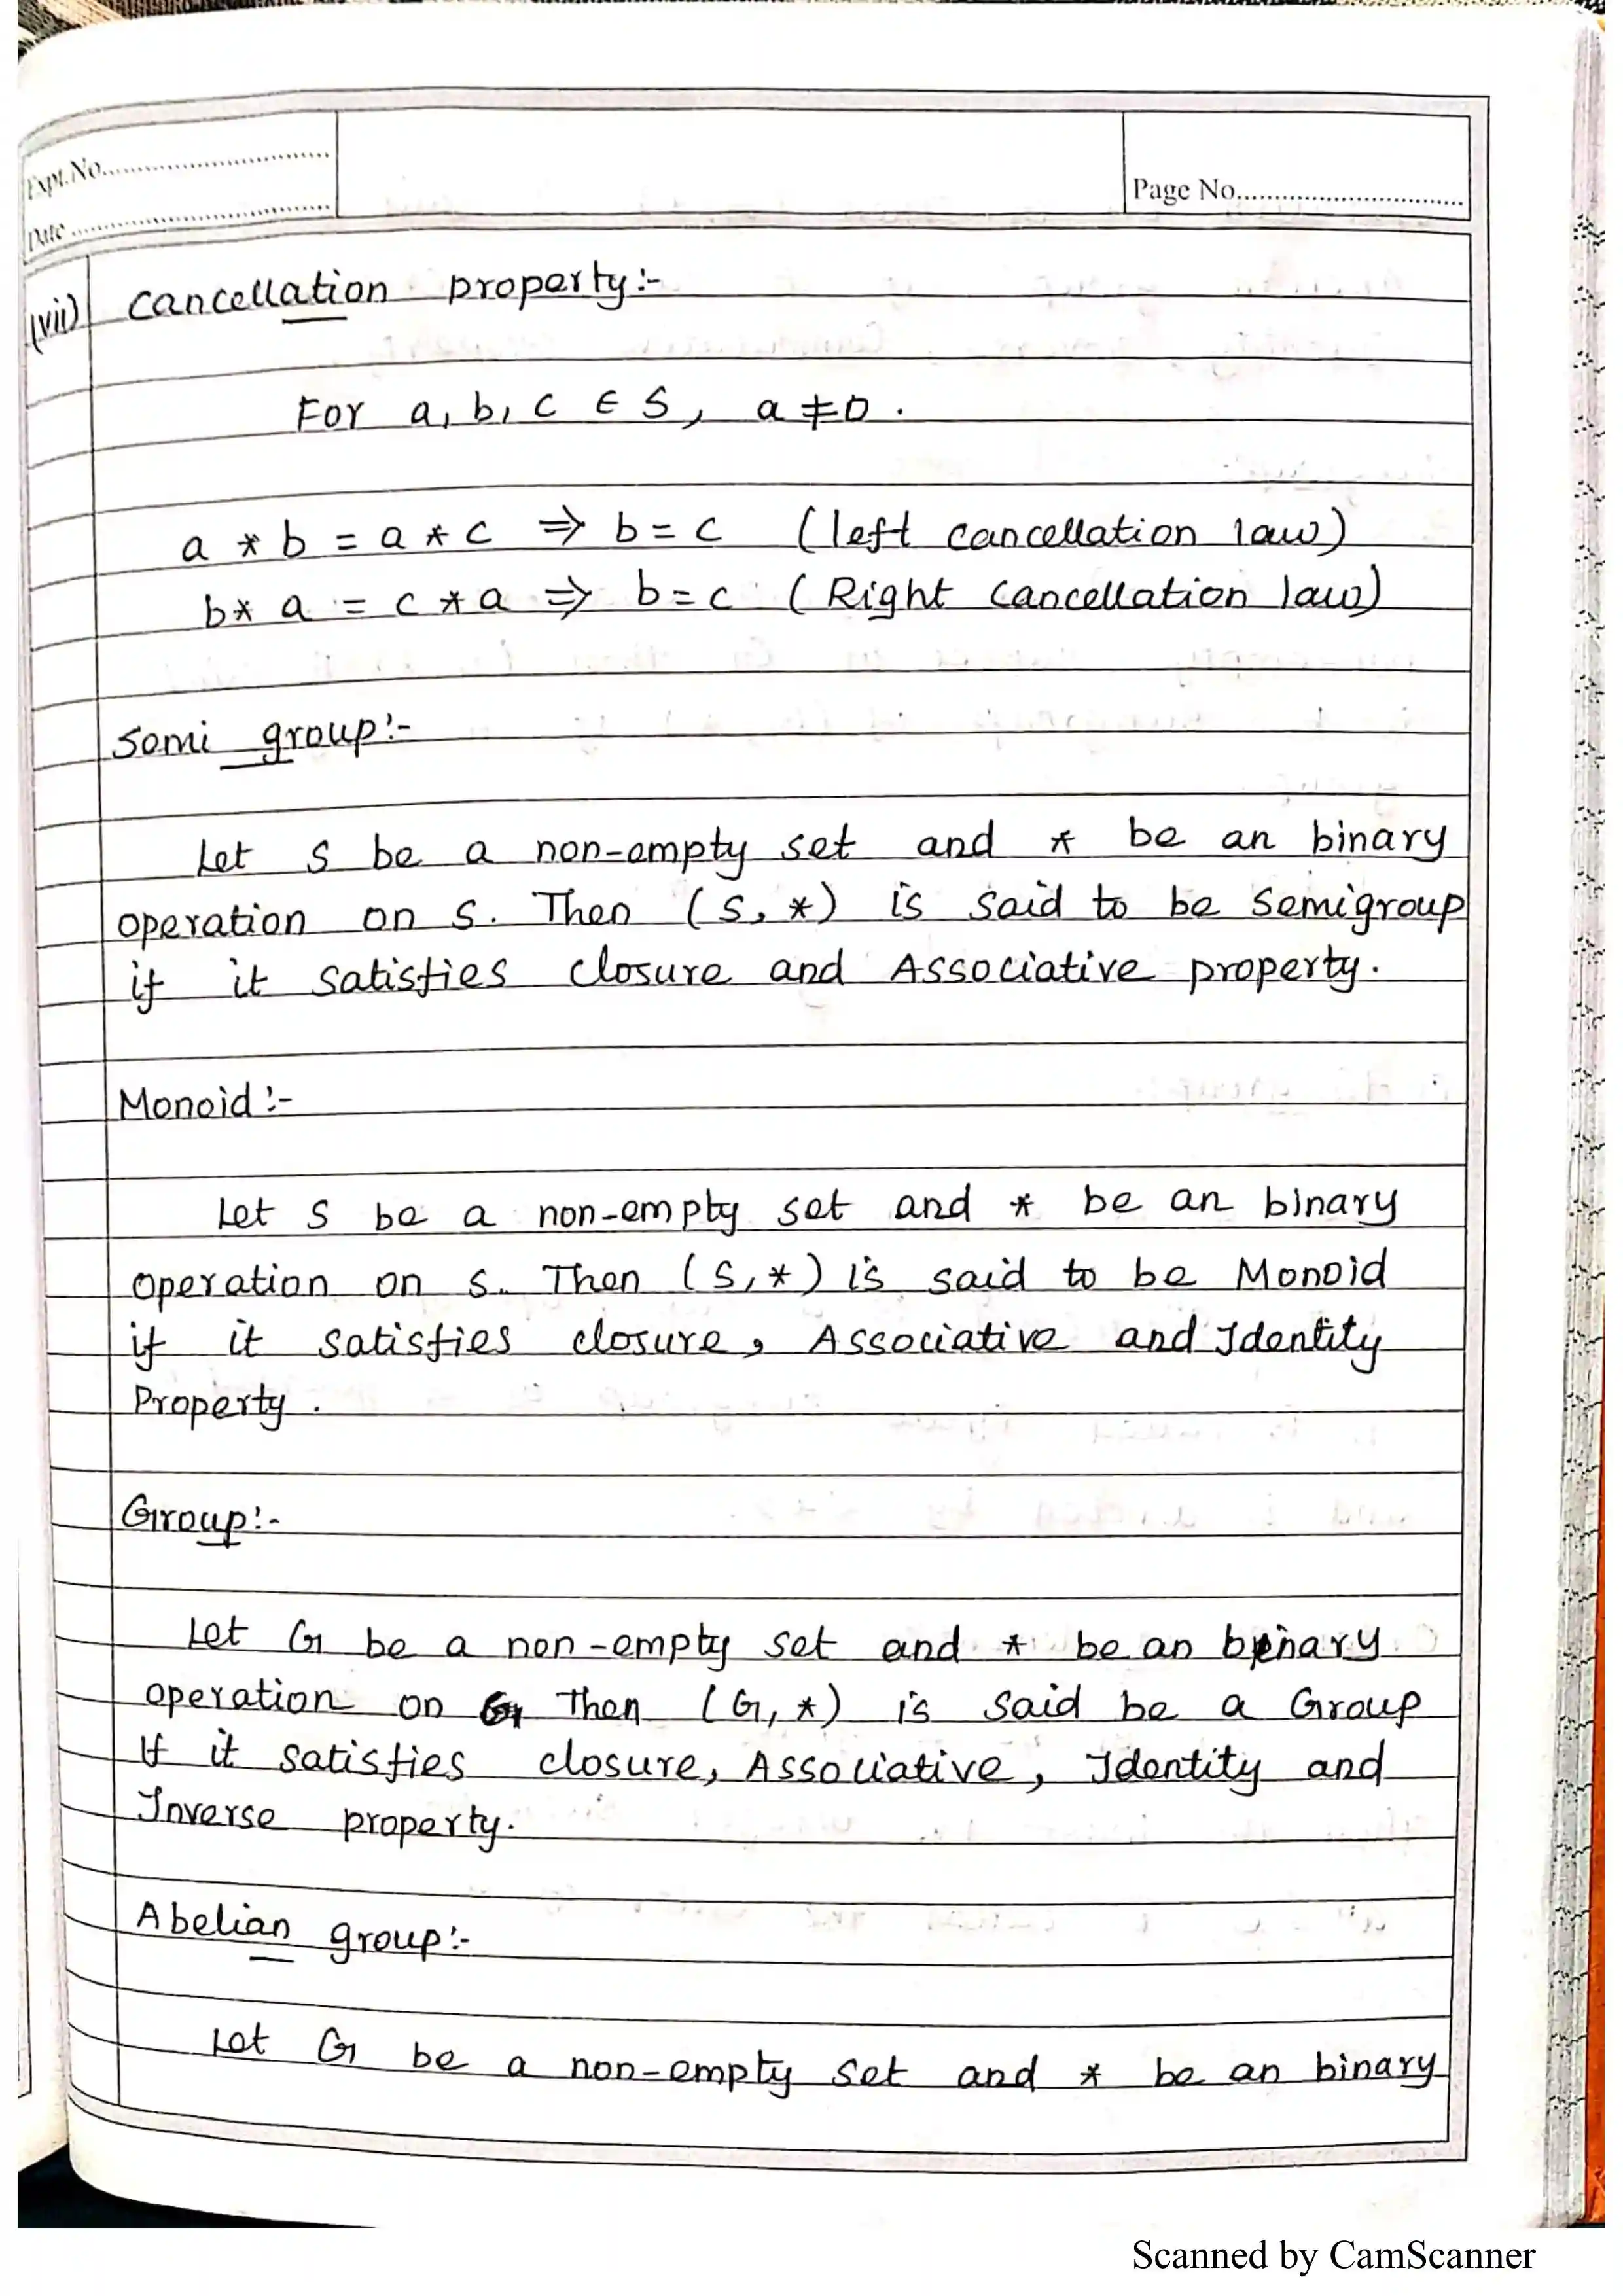 Expt.No.
Page No.
Date
(vii) Cancellation property:-
For a, b, c ∈ S, a ≠ 0.
a * b = a * c ⇒ b = c (left cancellation law)
b * a = c * a ⇒ b = c (Right cancellation law)
Semi group:-
Let S be a non-empty set and * be an binary
operation on S. Then (S, *) is said to be Semigroup
if it satisfies closure and Associative property.
Monoid:-
Let S be a non-empty set and * be an binary
operation on S. Then (S, *) is said to be Monoid
if it satisfies closure, Associative and Identity
Property.
Group:-
Let G be a non-empty set and * be an binary
operation on G Then (G, *) is said be a Group
if it satisfies closure, Associative, Identity and
Inverse property.
Abelian group:-
Let G be a non-empty set and * be an binary
Scanned by CamScanner